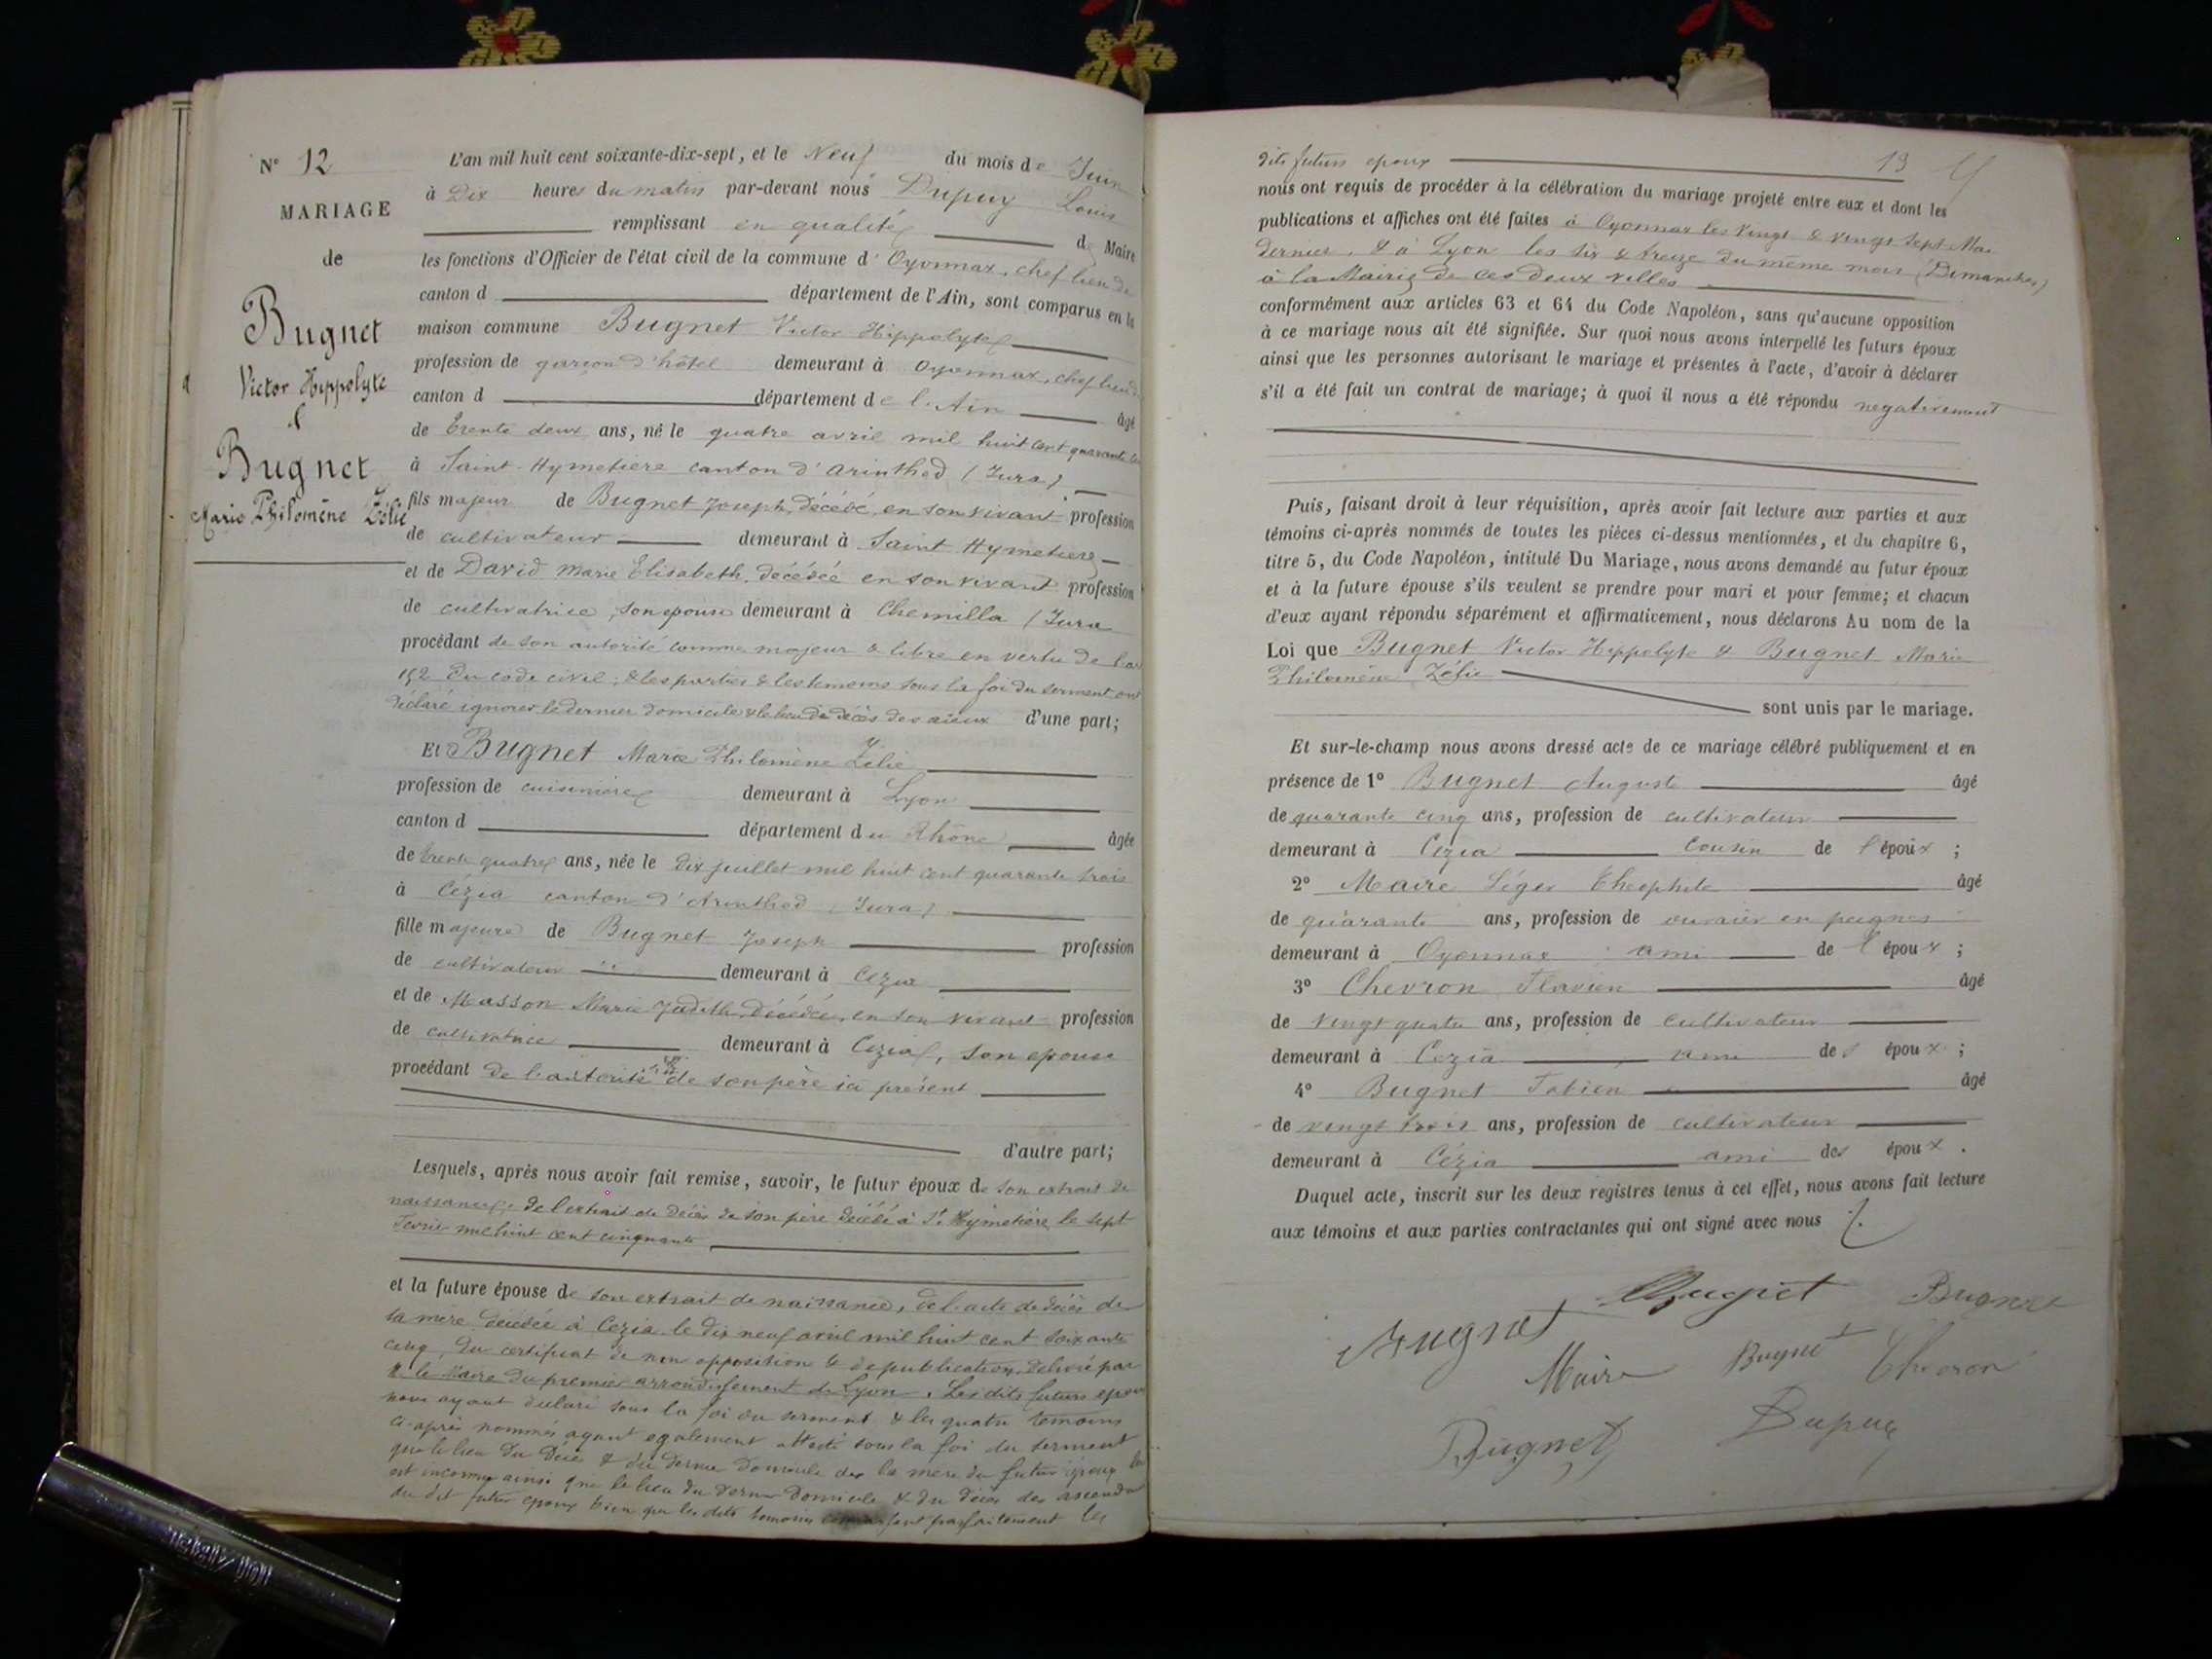 N° 12
MARIAGE
de
Bugnet
Victor Hippolyte
&
Bugnet
Marie Philomène Zélie
L'an mil huit cent soixante-dix-sept, et le Neuf du mois de Juin
à Dix heures du matin par-devant nous Dupuy Louis
remplissant en qualité de Maire
les fonctions d'Officier de l'état civil de la commune d'Oyonnax, chef lieu de
canton d département de l'Ain, sont comparus en la
maison commune Bugnet Victor Hippolyte
profession de garçon d'hôtel demeurant à Oyonnax, chef lieu de
canton d département de l'Ain âgé
de trente deux ans, né le quatre avril mil huit cent quarante
à Saint-Hymetière canton d'Arinthod (Jura)
fils majeur de Bugnet Joseph, décédé, en son vivant profession
de cultivateur demeurant à Saint Hymetière
et de David Marie Elisabeth, décédée en son vivant profession
de cultivatrice, son epouse demeurant à Chemilla (Jura
procédant de son autorité comme majeur & libre en vertu de l'art
152 du code civil; & les parties & les temoins sous la foi du serment ont
déclaré ignorer le dernier domicile & le lieu du décès des aïeux d'une part;
Et Bugnet Marie Philomène Zélie
profession de cuisinière demeurant à Lyon
canton d département du Rhône âgée
de trente quatre ans, née le dix juillet mil huit cent quarante trois
à Cézia canton d'Arinthod (Jura)
fille majeure de Bugnet Joseph profession
de cultivateur demeurant à Cézia
et de Masson Marie Judith, décédée, en son vivant profession
de cultivatrice demeurant à Cezia, son epouse
procédant de l'autorité de son père ici présent
d'autre part;
Lesquels, après nous avoir fait remise, savoir, le futur époux de son extrait de
naissance, de l'extrait de décès de son père décédé à St Hymetière le sept
mil huit cent cinquante
et la future épouse de son extrait de naissance, de l'acte de décès de
sa mère décédée à Cezia le dix neuf avril mil huit cent soixante
cinq, du certificat de non opposition & de publication delivré par
M. le Maire du premier arrondissement de Lyon. Les dits futurs epoux
nous ayant déclaré sous la foi du serment & les quatre temoins
ci-après nommés ayant egalement attesté sous la foi du serment
que le lieu du décès & du dernier domicile de la mere du futur époux
est inconnu ainsi que le lieu du dernier domicile & du décès des ascendants
du dit futur epoux bien que les dits temoins connaissent parfaitement les
13
dits futurs epoux
nous ont requis de procéder à la célébration du mariage projeté entre eux et dont les
publications et affiches ont été faites à Oyonnax les vingt & vingt sept Mai
dernier, & à Lyon les six & treize du même mois (Dimanches)
à la Mairie de ces deux villes
conformément aux articles 63 et 64 du Code Napoléon, sans qu'aucune opposition
à ce mariage nous ait été signifiée. Sur quoi nous avons interpellé les futurs époux
ainsi que les personnes autorisant le mariage et présentes à l'acte, d'avoir à déclarer
s'il a été fait un contrat de mariage; à quoi il nous a été répondu negativement
Puis, faisant droit à leur réquisition, après avoir fait lecture aux parties et aux
témoins ci-après nommés de toutes les pièces ci-dessus mentionnées, et du chapitre 6,
titre 5, du Code Napoléon, intitulé Du Mariage, nous avons demandé au futur époux
et à la future épouse s'ils veulent se prendre pour mari et pour femme; et chacun
d'eux ayant répondu séparément et affirmativement, nous déclarons Au nom de la
Loi que Bugnet Victor Hippolyte & Bugnet Marie
Philomène Zélie
sont unis par le mariage.
Et sur-le-champ nous avons dressé acte de ce mariage célébré publiquement et en
présence de 1° Bugnet Auguste âgé
de quarante cinq ans, profession de cultivateur
demeurant à Cézia cousin de l'époux;
2° Maire Léger Théophile âgé
de quarante ans, profession de ouvrier en peignes
demeurant à Oyonnax ami de l'époux;
3° Chevron Flavien âgé
de vingt quatre ans, profession de cultivateur
demeurant à Cezia ami des époux;
4° Bugnet Fabien âgé
de vingt trois ans, profession de cultivateur
demeurant à Cézia ami des époux.
Duquel acte, inscrit sur les deux registres tenus à cet effet, nous avons fait lecture
aux témoins et aux parties contractantes qui ont signé avec nous
Bugnet Bugnet
Bugnet
Maire Bugnet Chevron
Bugnet Dupuy